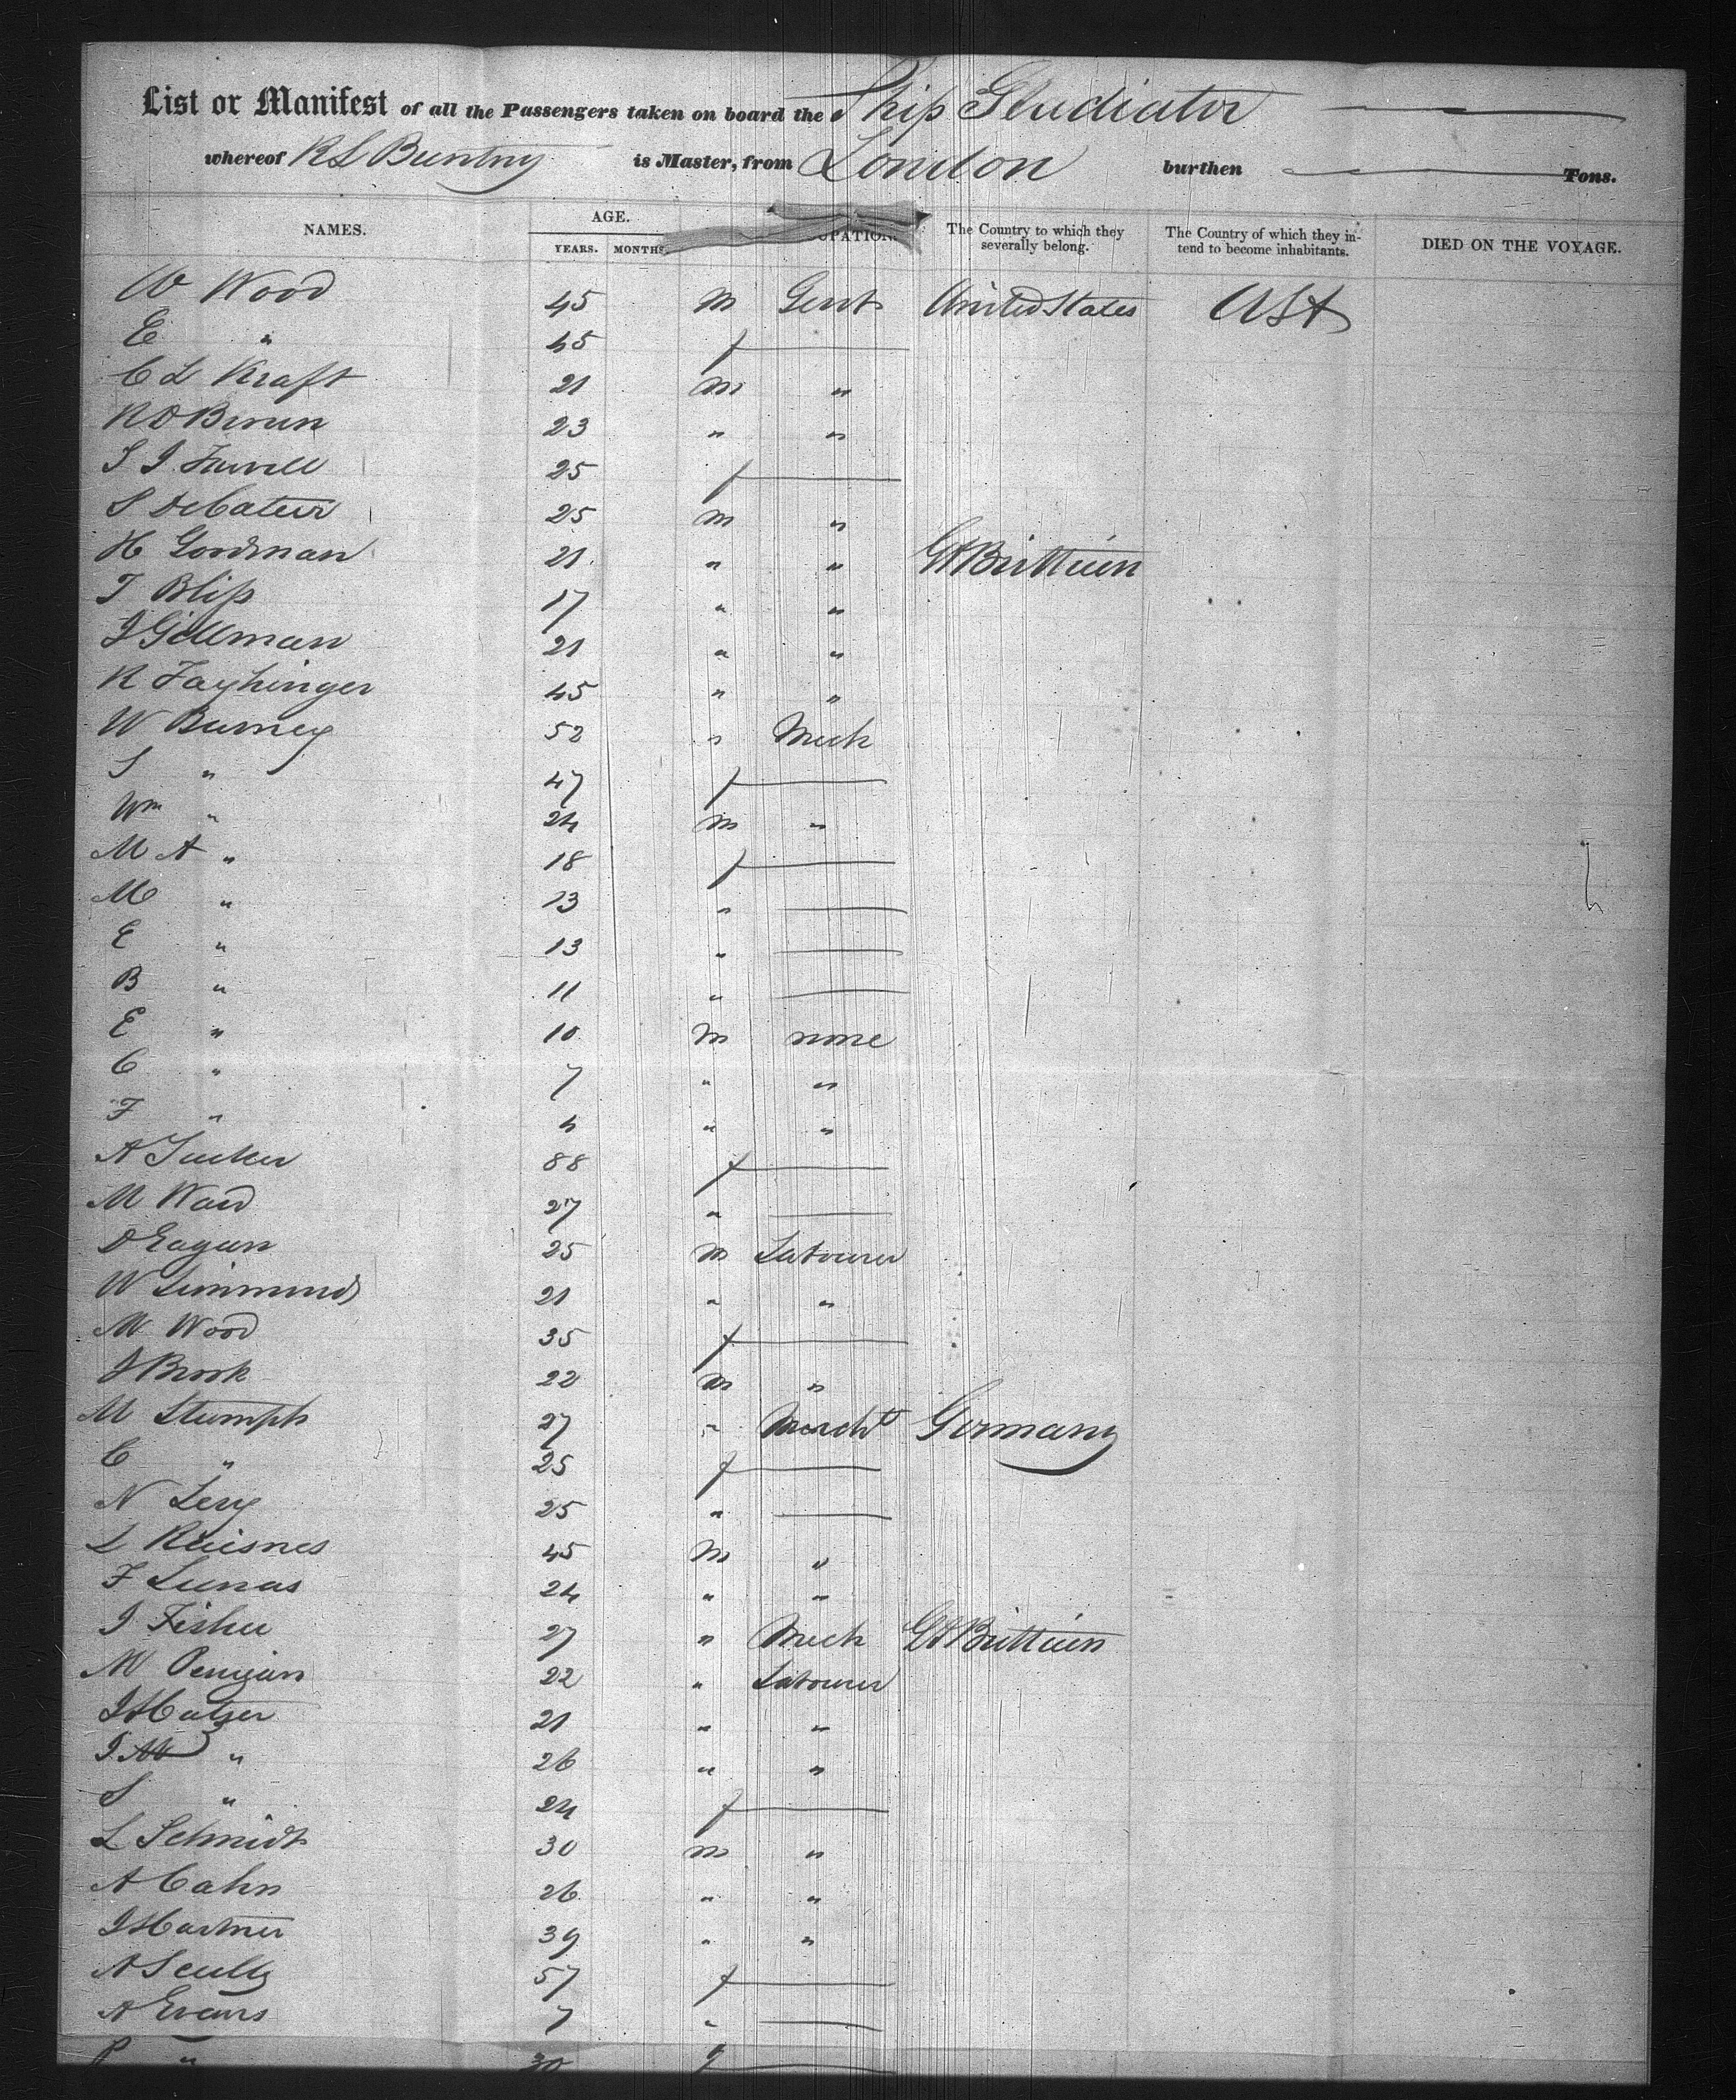 List or Manifest of all the Passengers taken on board the Ship Gladiator
whereof R L Bunting is Master, from London burthen Tons.
NAMES. AGE. YEARS. MONTHS. CUPATION. The Country to which they severally belong. The Country of which they intend to become inhabitants. DIED ON THE VOYAGE.
W Wood 45 m Gent United States USA
E " 45 f
C L Kraft 21 m "
R D Brown 23 " "
S J 25 f
S 25 m "
H Goodman 21 " " Gt Brittain
T Bliss 17 " "
J Gillman 21 " "
R Fayhinger 45 " "
W Burney 52 " Mech
S " 47 f
Wm " 24 m "
M A " 18 f
M " 13 "
E " 13 "
B " 11 "
E " 10 m none
C " 7 " "
F " 4 " "
A Tucker 88 f
M Ward 27 "
D Eagan 25 m Labourer
W Simmonds 21 " "
M Wood 35 f
J Brook 22 m "
M Stumph 27 " Mercht Germany
C " 25 f
N Levy 25 "
L 45 m "
F Lunas 24 " "
J Fisher 27 " Mech Gt Brittain
M 22 " Labourer
J 21 " "
J " 26 " "
S " 24 f
L Schmidt 30 m "
A Cahn 26 " "
J Hartner 39 " "
A Scully 57 f
A Evans 7 "
P " 30